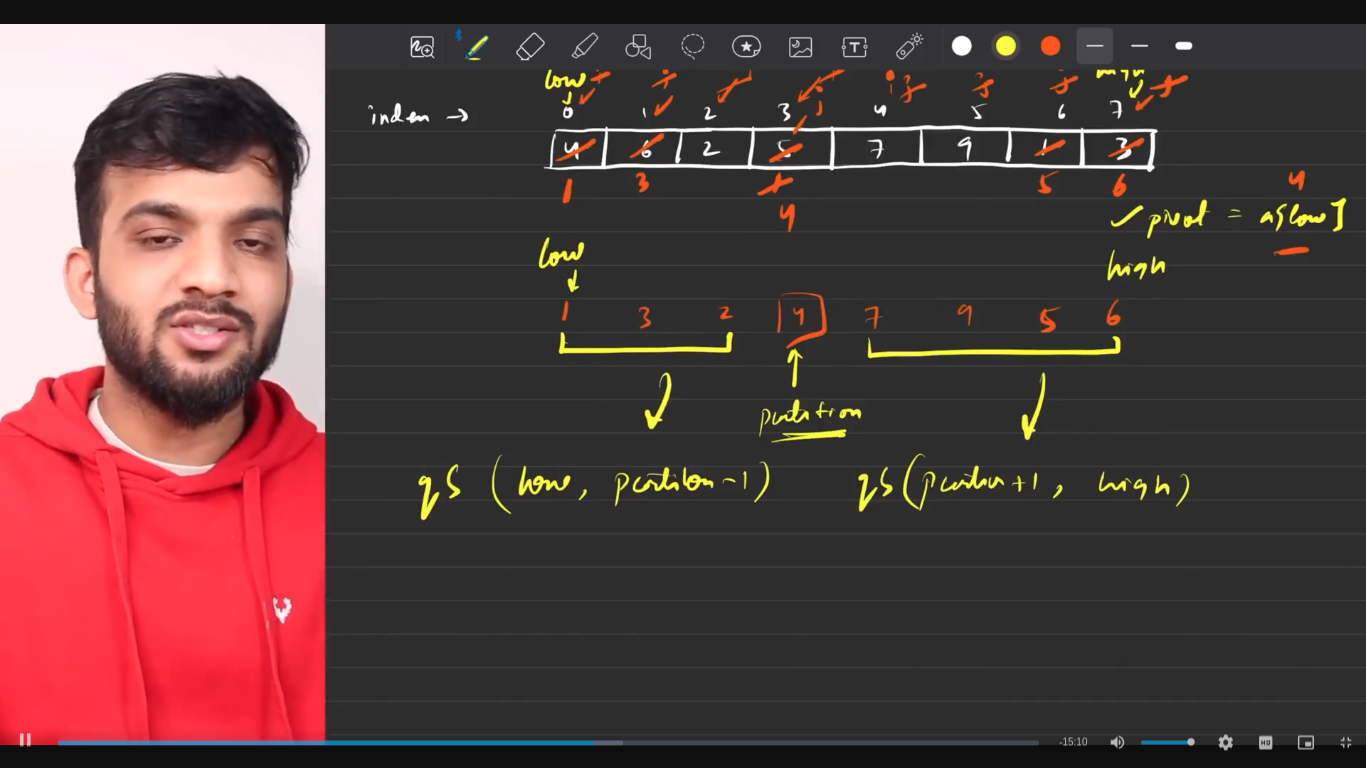 low high
index → 0 1 2 3 4 5 6 7
4 6 2 5 7 9 1 3
1 3 1 5 6
4
4
✓ pivot = a[low]
low high
1 3 2 4 7 9 5 6
partition
qS (low, partition-1) qS(partition+1, high)
-15:10 HD